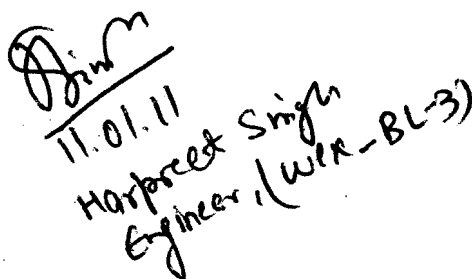 11.01.11
Harpreet Singh
Engineer, (WEX-BL-3)